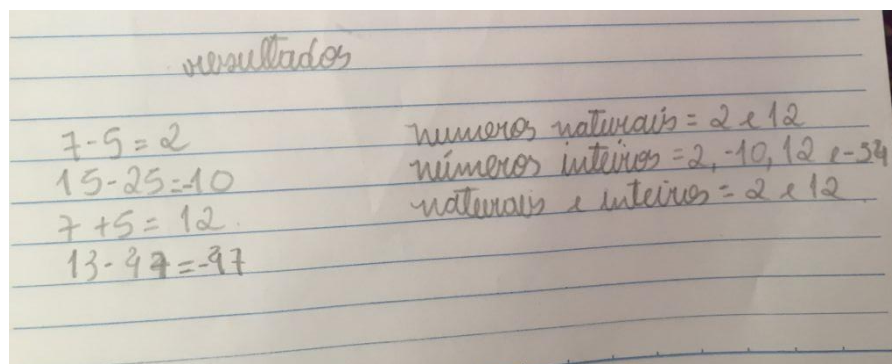 resultados
7-5=2
15-25=-10
7+5=12.
13-47=-97
numeros naturais = 2 e 12
números inteiros = 2, -10, 12 e -34
naturais e inteiros = 2 e 12.